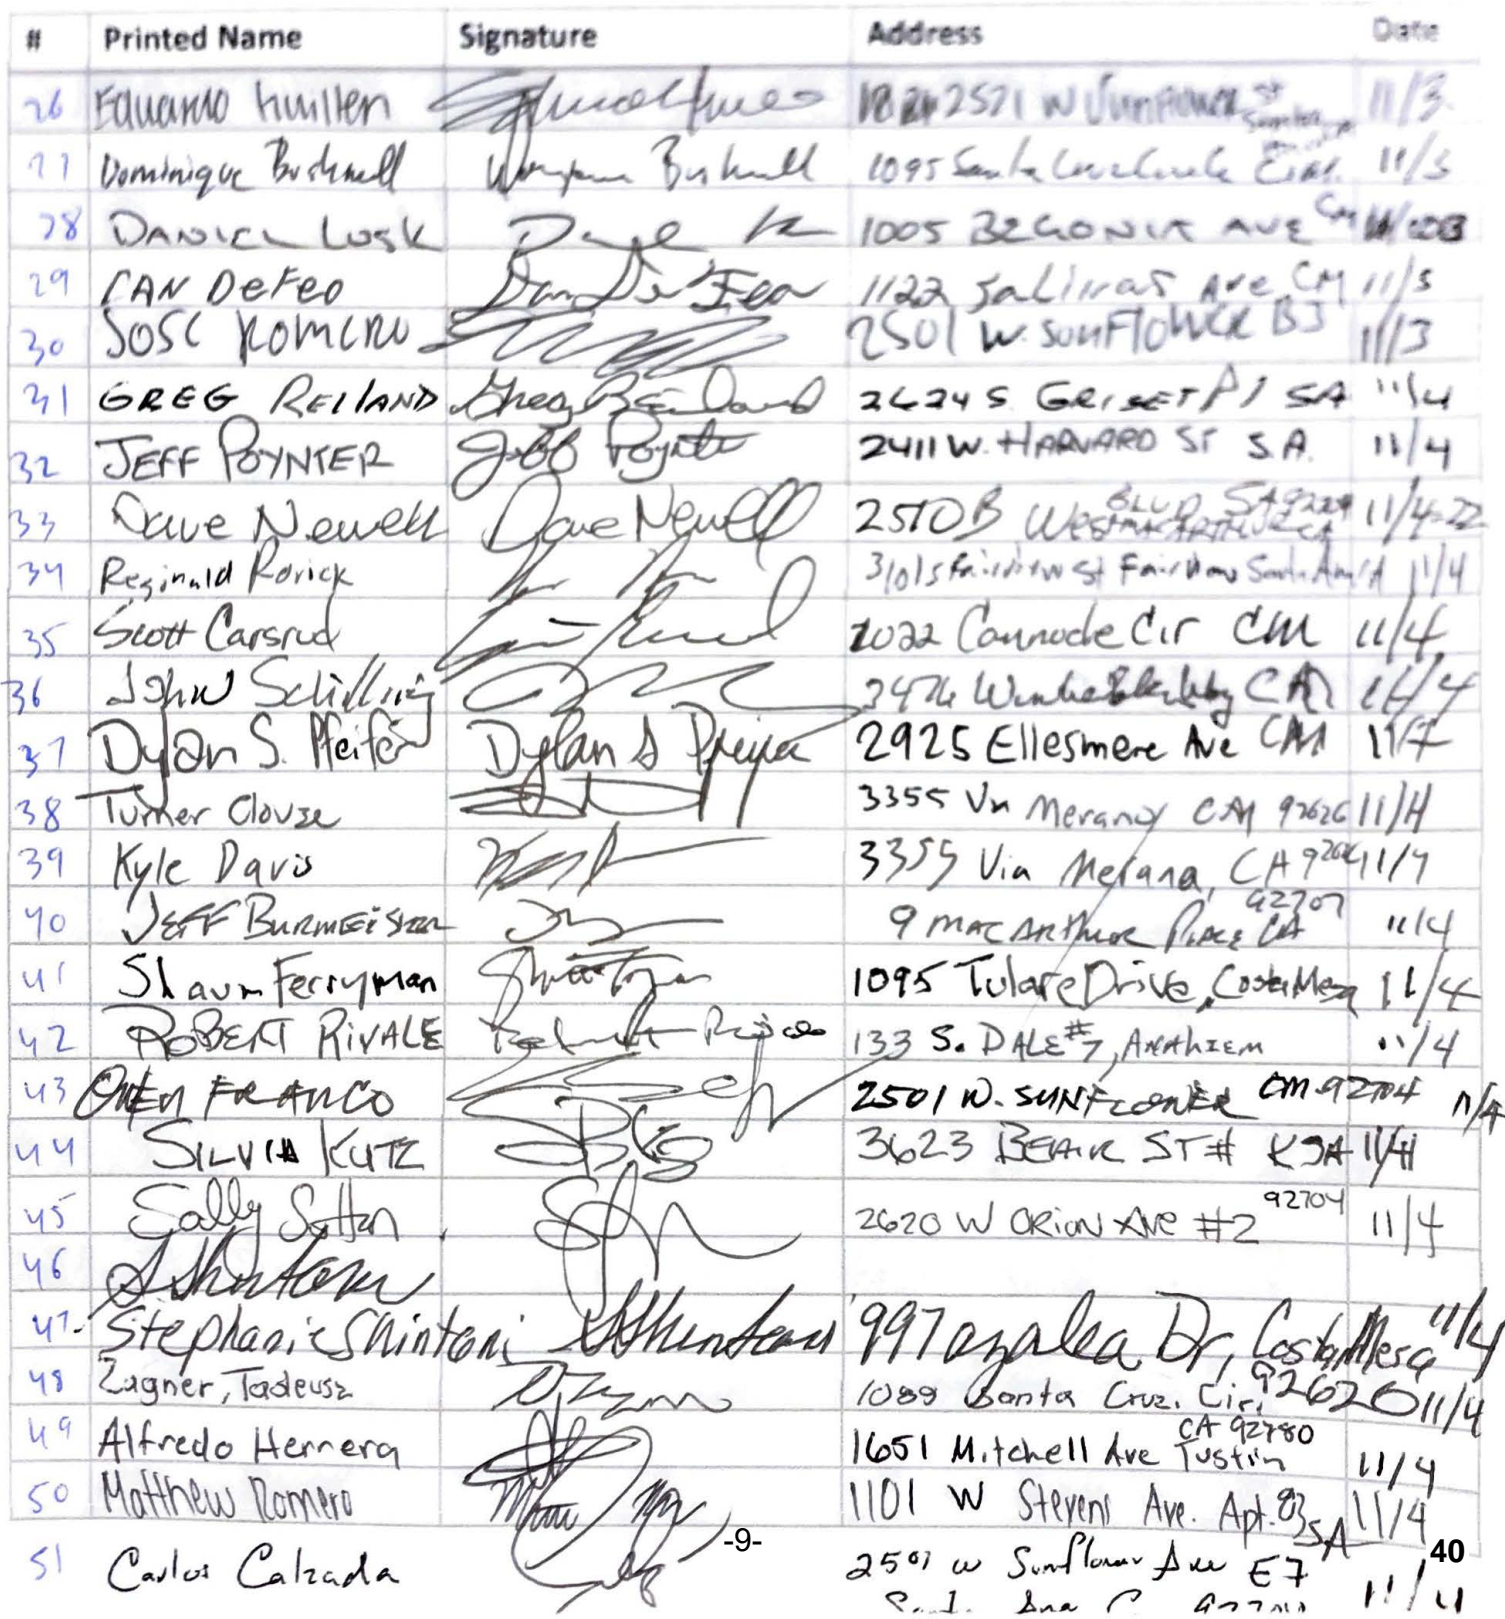 # Printed Name Signature Address Date
26 Eduardo Guillen 2521 W Sunflower St 11/3
27 Dominique Bushnell Bushnell 1095 Santa Cir 11/3
28 DANIEL LUSK 1005 BEGONIA AVE CM
29 DAN DeFeo Dan DeFeo 1122 Salinas Ave CM 11/3
30 JOSE ROMERO 2501 W. SUNFLOWER B3 11/3
31 GREG REILAND Greg Reiland 2624 S. GRISET Pl SA 11/4
32 JEFF POYNTER Jeff Poynter 2411 W. HARVARD ST S.A. 11/4
33 Dave Newell Dave Newell 2510 B WEST MACARTHUR BLVD SA CA 11/4-22
34 Reginald Rorick 3101 S Fairview St Fairview Santa Ana 11/4
35 Scott Carsrud 1022 Cir CM 11/4
36 John Schilling CM 11/4
37 Dylan S. Pfeifer Dylan S Pfeifer 2925 Ellesmere Ave CM 11/7
38 Turner Clouse 3355 Via CM 92626 11/4
39 Kyle Davis 3355 Via Merana, CA 11/4
40 JEFF BURMEISTER 9 MACARTHUR PLACE CA 92707 11/4
41 Shaun Ferryman 1095 Tulare Drive, Costa Mesa 11/4
42 ROBERT RIVALE Robert Rivale 133 S. DALE #7, ANAHIEM 11/4
43 OWEN FRANCO 2501 W. SUNFLOWER CM 92704 11/4
44 SILVIA KUTZ 3623 BEAR ST # K SA 11/4
45 Sally Sutton 2620 W ORION AVE #2 92704 11/4
46 SShintani
47. Stephanie Shintani SShintani 997 azalea Dr, Costa Mesa 11/4
92626
48 Zagner, Tadeusz 1089 Santa Cruz. Cir. 11/4
49 Alfredo Herrera 1651 Mitchell Ave Tustin CA 92780 11/4
50 Matthew Romero 1101 W Stevens Ave. Apt. 83 SA 11/4
-9- 40
51 Carlos Calzada 2501 W Sunflower Ave E7 11/4